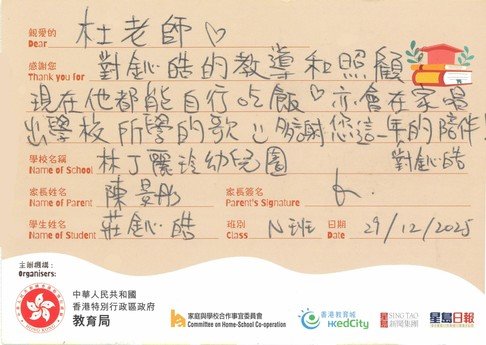 親愛的
Dear 杜老師♡
感謝您
Thank you for 對鈊皓的教導和照顧
現在他都能自行吃飯♡亦會在家唱
出學校所學的歌 :) 多謝您這一年的陪伴!
對鈊皓
學校名稱
Name of School 林丁麗玲幼兒園
家長姓名
Name of Parent 陳晏彤
家長簽名
Parent's Signature
學生姓名
Name of Student 莊鈊皓
班別
Class N班
日期
Date 29/12/2025
主辦機構:
Organisers:
HONG KONG
中華人民共和國
香港特別行政區政府
教育局
家庭與學校合作事宜委員會
Committee on Home-School Co-operation
香港教育城
HKedCity
星島 SING TAO
新聞集團
星島日報